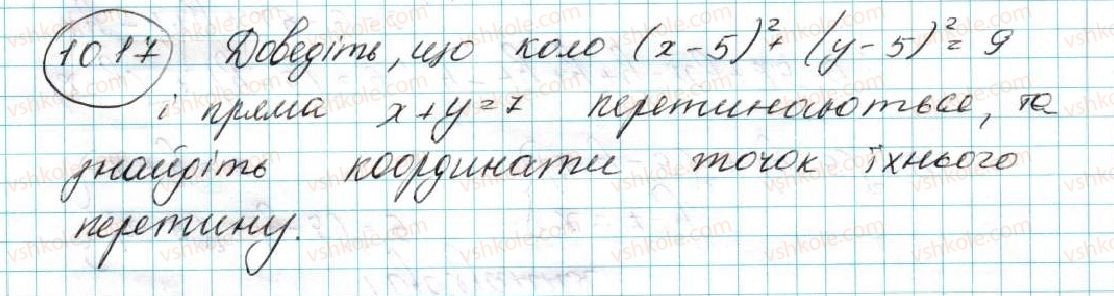 10.17 Доведіть, що коло (x-5)²+(y-5)²=9
і пряма x+y=7 перетинаються, та
знайдіть координати точок їхнього
перетину.